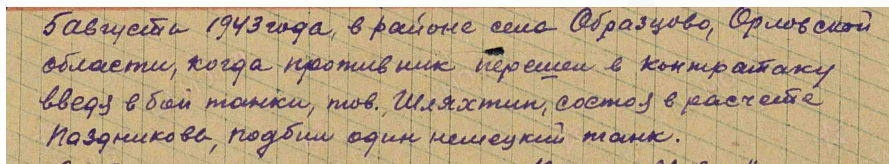 5 августа 1943 года, в районе села Образцово, Орловской
области, когда противник перешел в контратаку
введя в бой танки, тов. Шляхтин, состоя в расчете
Паздникова, подбил один немецкий танк.